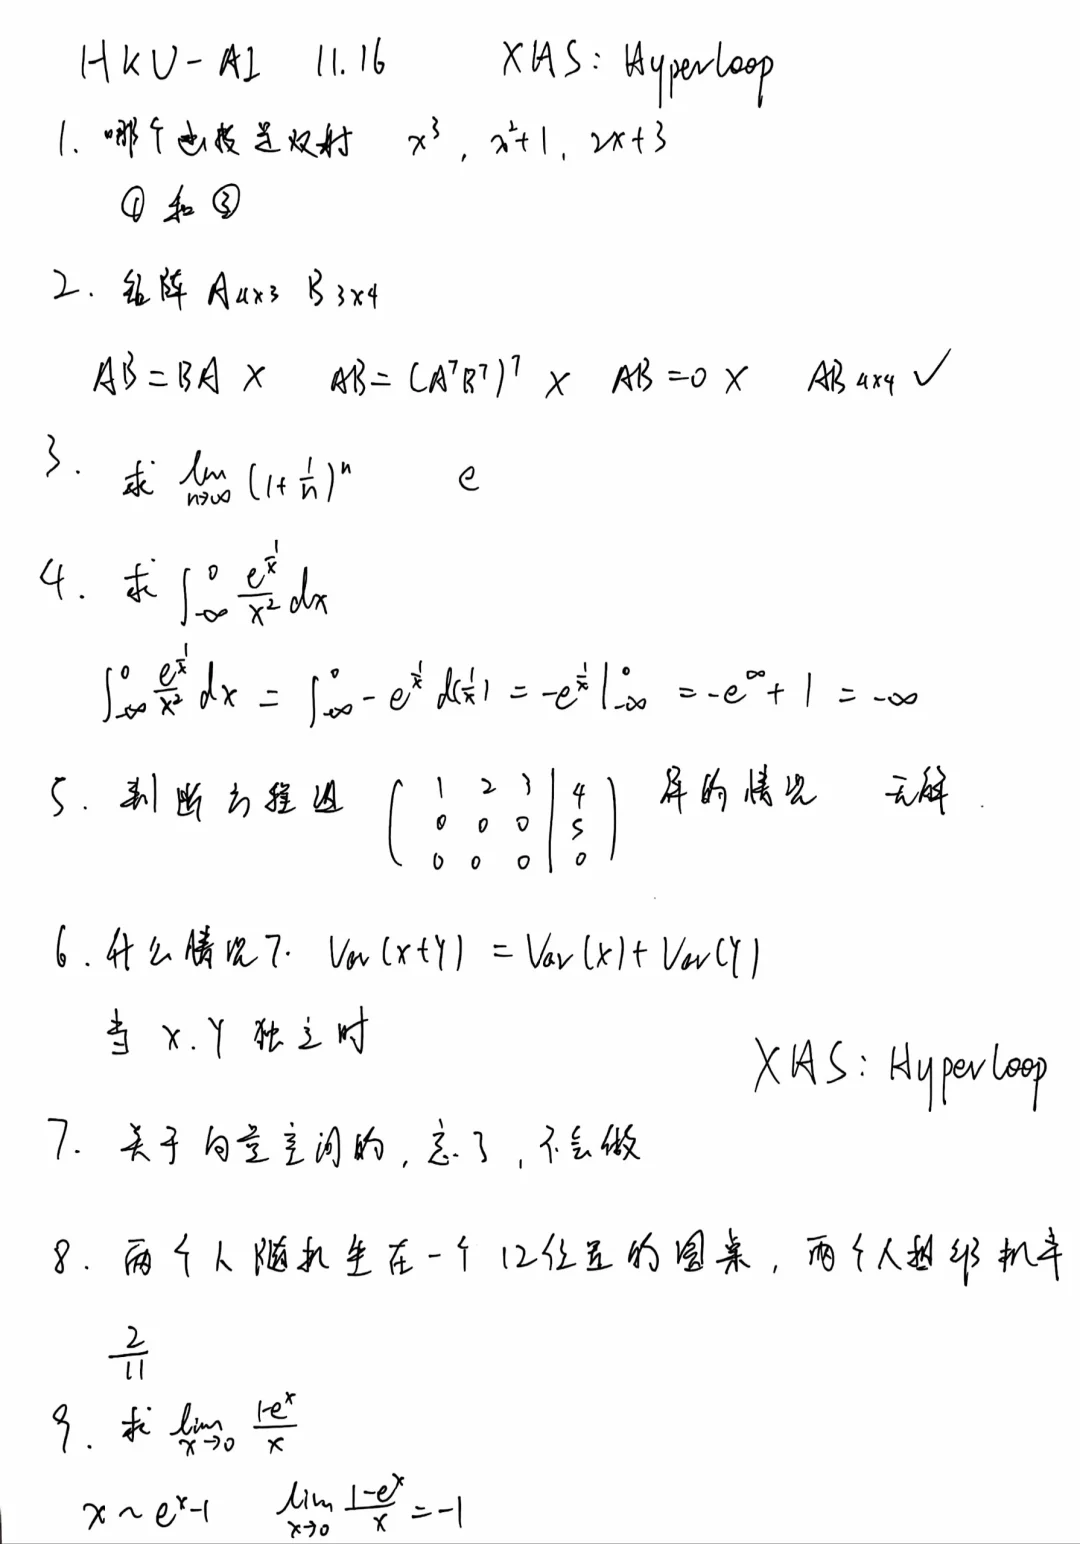 HKU-AI 11.16 XHS: Hyperloop
1. 哪个函数是双射 x³, x²+1, 2x+3
① 和 ③
2. 矩阵 A₄ₓ₃ B₃ₓ₄
AB=BA × AB=(AᵀBᵀ)ᵀ × AB=0 × AB ₄ₓ₄ ✓
3. 求 lim n→∞ (1+1/n)ⁿ e
4. 求 ∫_{-∞}^{0} e^{1/x}/x² dx
∫_{-∞}^{0} e^{1/x}/x² dx = ∫_{-∞}^{0} -e^{1/x} d(1/x) = -e^{1/x}|_{-∞}^{0} = -e^∞+1 = -∞
5. 判断方程组 ( 1 2 3 | 4 ) 解的情况 无解.
0 0 0 | 5
0 0 0 | 0
6. 什么情况下. Var(x+y) = Var(x)+Var(y)
当 x.y 独立时
XHS: Hyperloop
7. 关于向量空间的, 忘了, 不会做
8. 两个人随机坐在一个12位置的圆桌, 两个人相邻概率
2/11
9. 求 lim x→0 (1-eˣ)/x
x ~ eˣ-1 lim x→0 (1-eˣ)/x = -1